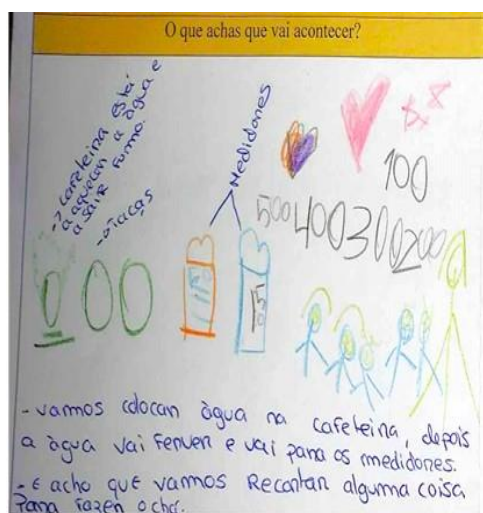 O que achas que vai acontecer?
-> cafeteira está
a aquecer a água e
a sair fumo.
-> Taças
Medidores
100
500 400 300 200
- vamos colocar água na cafeteira, depois
a água vai ferver e vai para os medidores.
- E acho que vamos Recortar alguma coisa
Para fazer o chá.